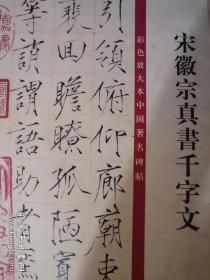 宋徽宗真書千字文
彩色放大本中国著名碑帖
引領俯仰廊廟束
徊瞻眺孤陋寡
謂語助者焉